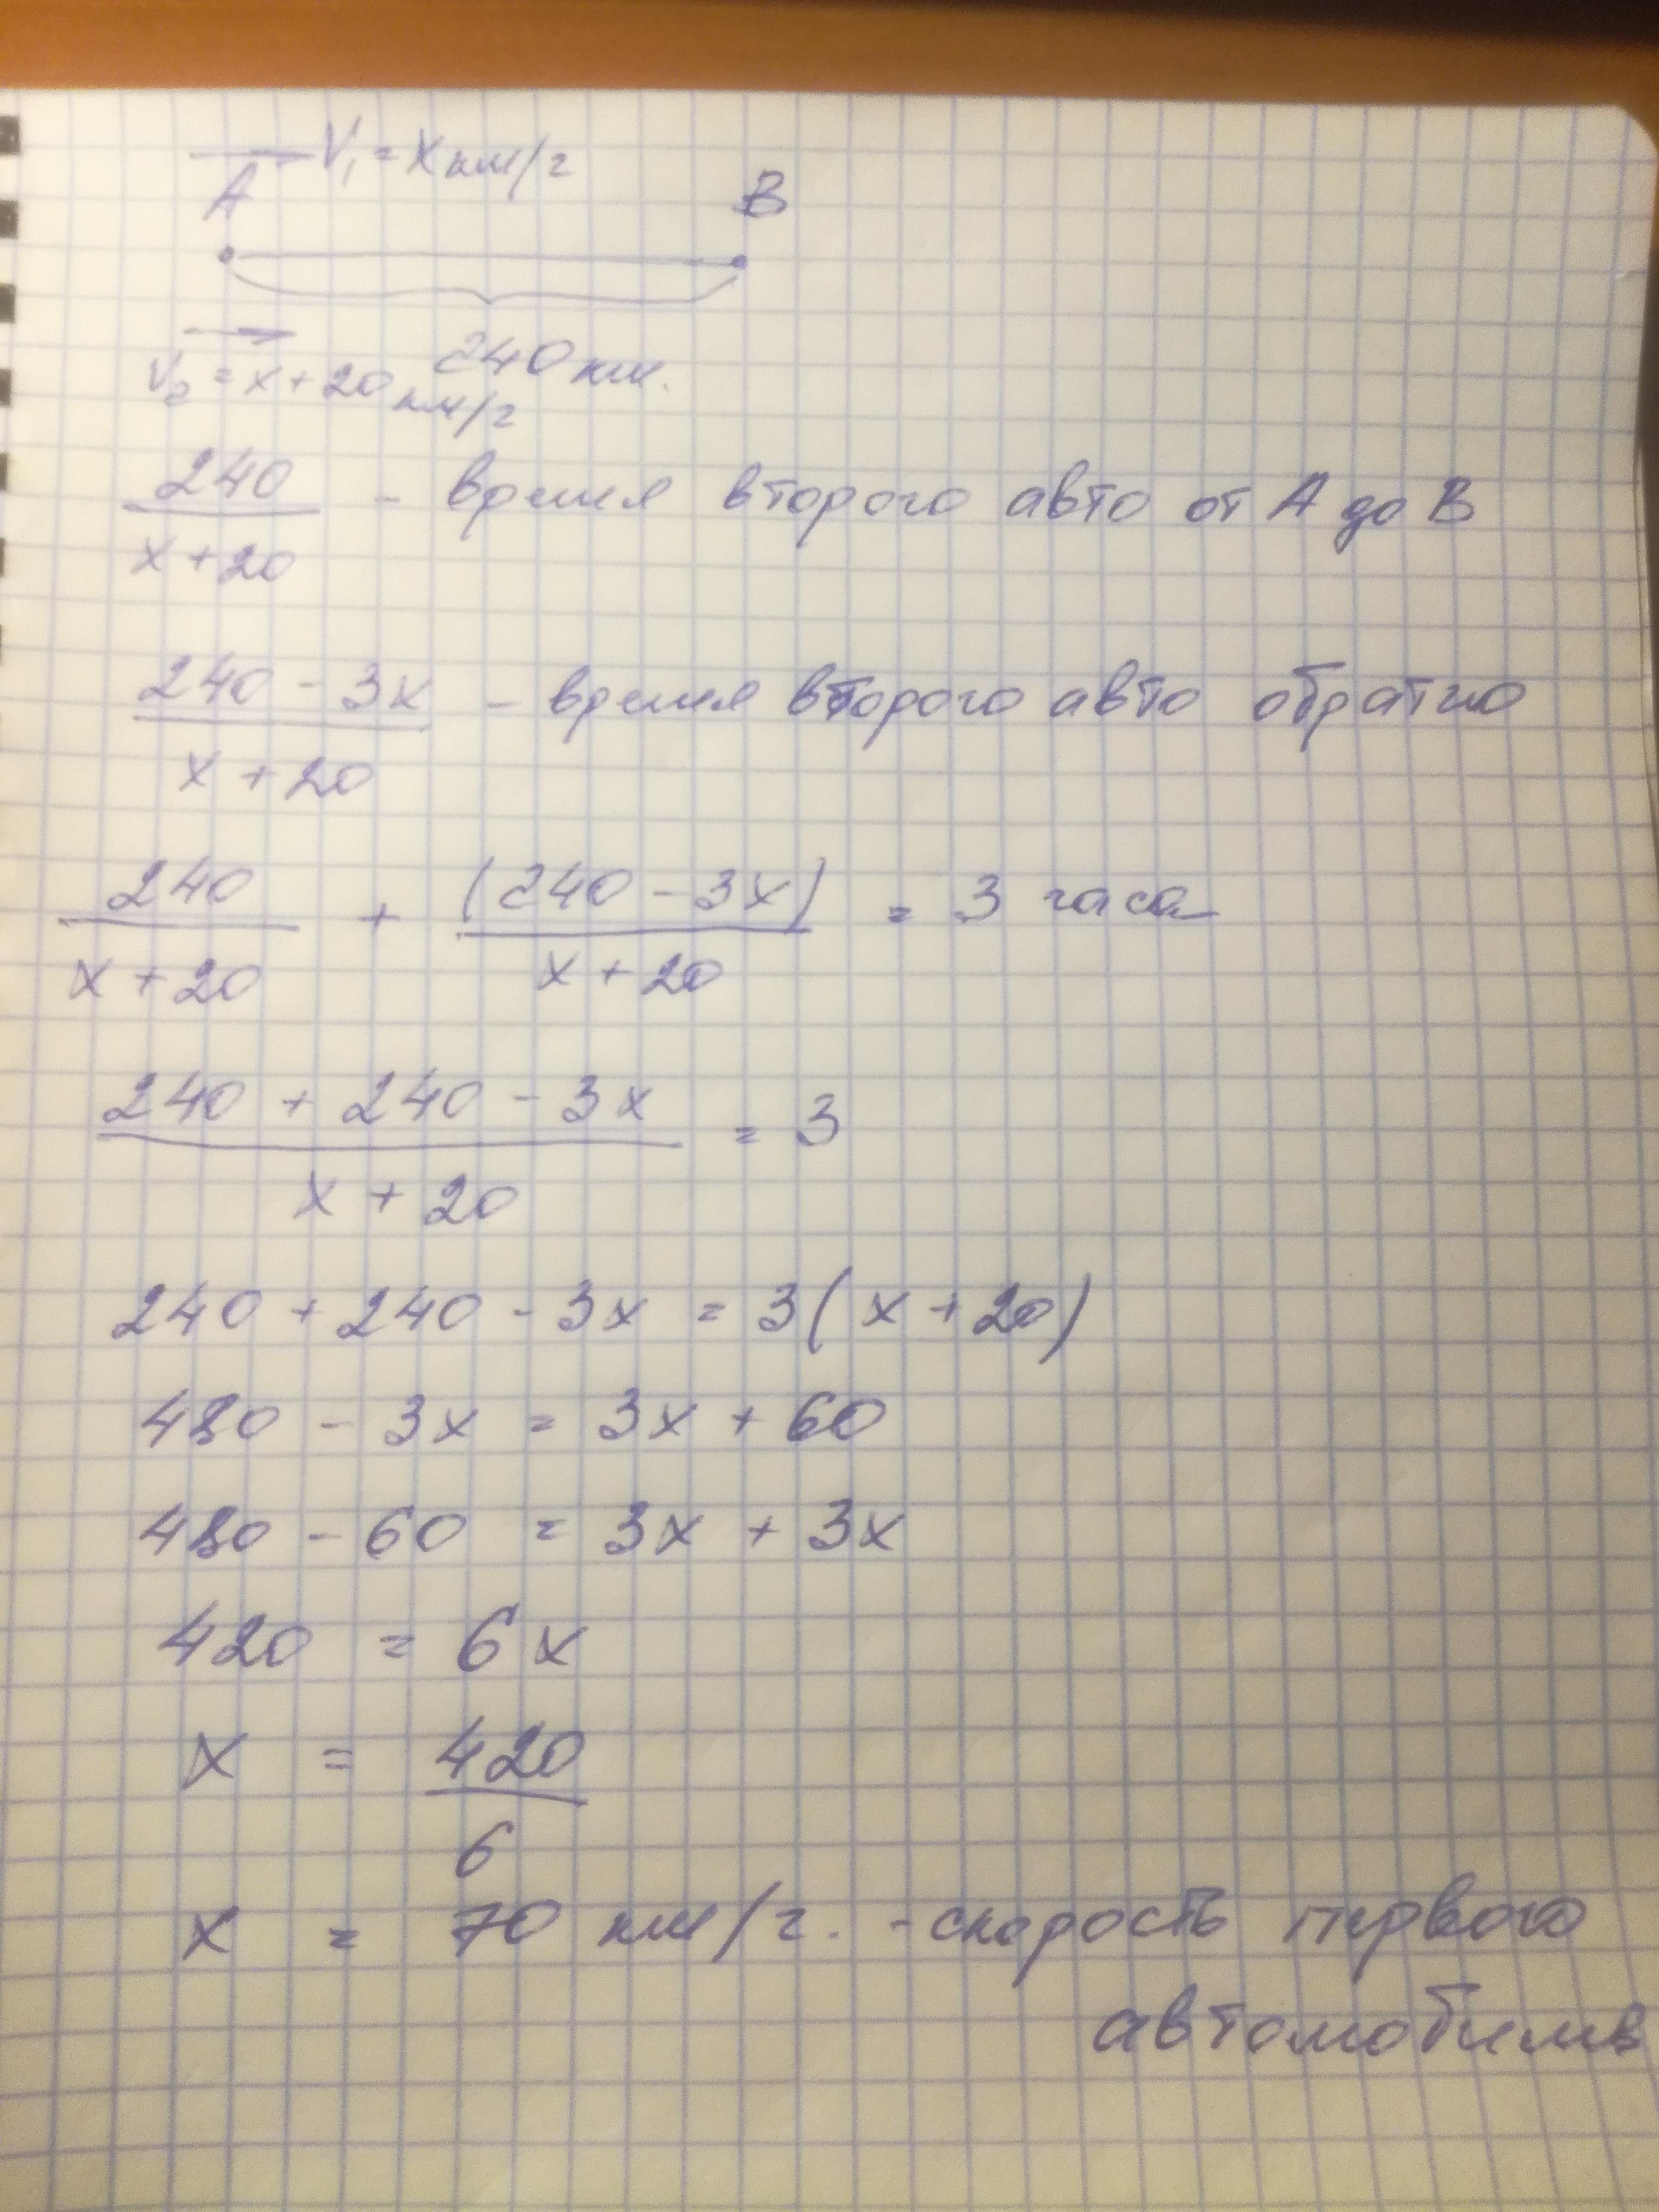 V₁ = x км/ч
A B
240 км.
V₂ = x + 20 км/ч
240 / x + 20 - время второго авто от A до B
240 - 3x / x + 20 - время второго авто обратно
240 / x + 20 + (240 - 3x) / x + 20 = 3 часа
240 + 240 - 3x / x + 20 = 3
240 + 240 - 3x = 3(x + 20)
480 - 3x = 3x + 60
480 - 60 = 3x + 3x
420 = 6x
x = 420 / 6
x = 70 км/ч. - скорость первого
автомобиля